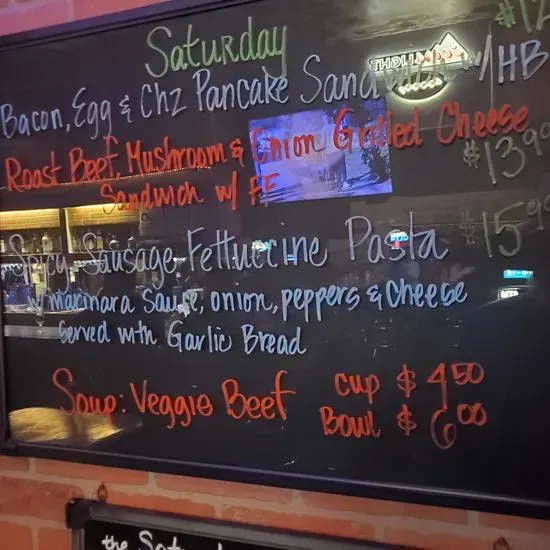 Saturday $12
Bacon, Egg & Chz Pancake Sandwich w/HB
Roast Beef, Mushroom & Onion Grilled Cheese $13
Sandwich w/ FF
Spicy Sausage Fettuccine Pasta $15
w/ marinara sauce, onion, peppers & cheese
Served with Garlic Bread
Soup: Veggie Beef cup $4.50
Bowl $6.00
the